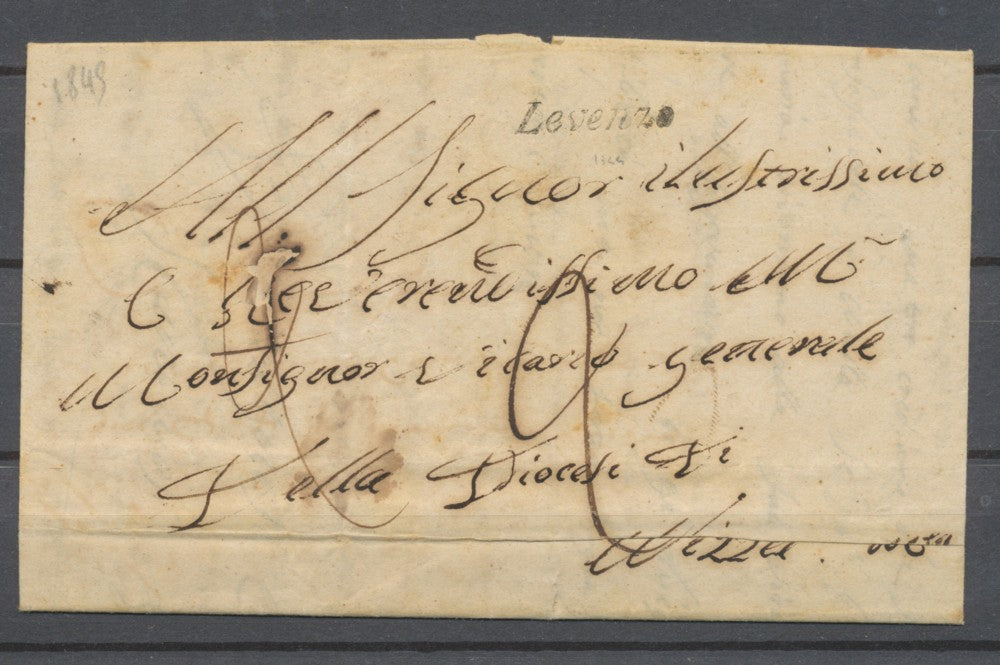 1849
Levenzo
All Signor illustrissimo
E Reverendissimo
Monsignor Vicario generale
Della Diocesi Di
Nizza.